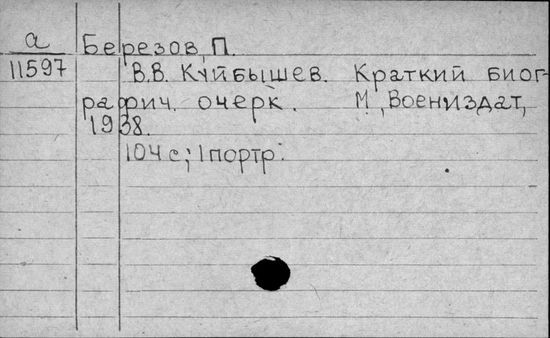 а Березов, П.
11597 В.В. Куйбышев. Краткий биог-
рафич. очерк. М, Воениздат,
1938.
104 с; 1 портр.